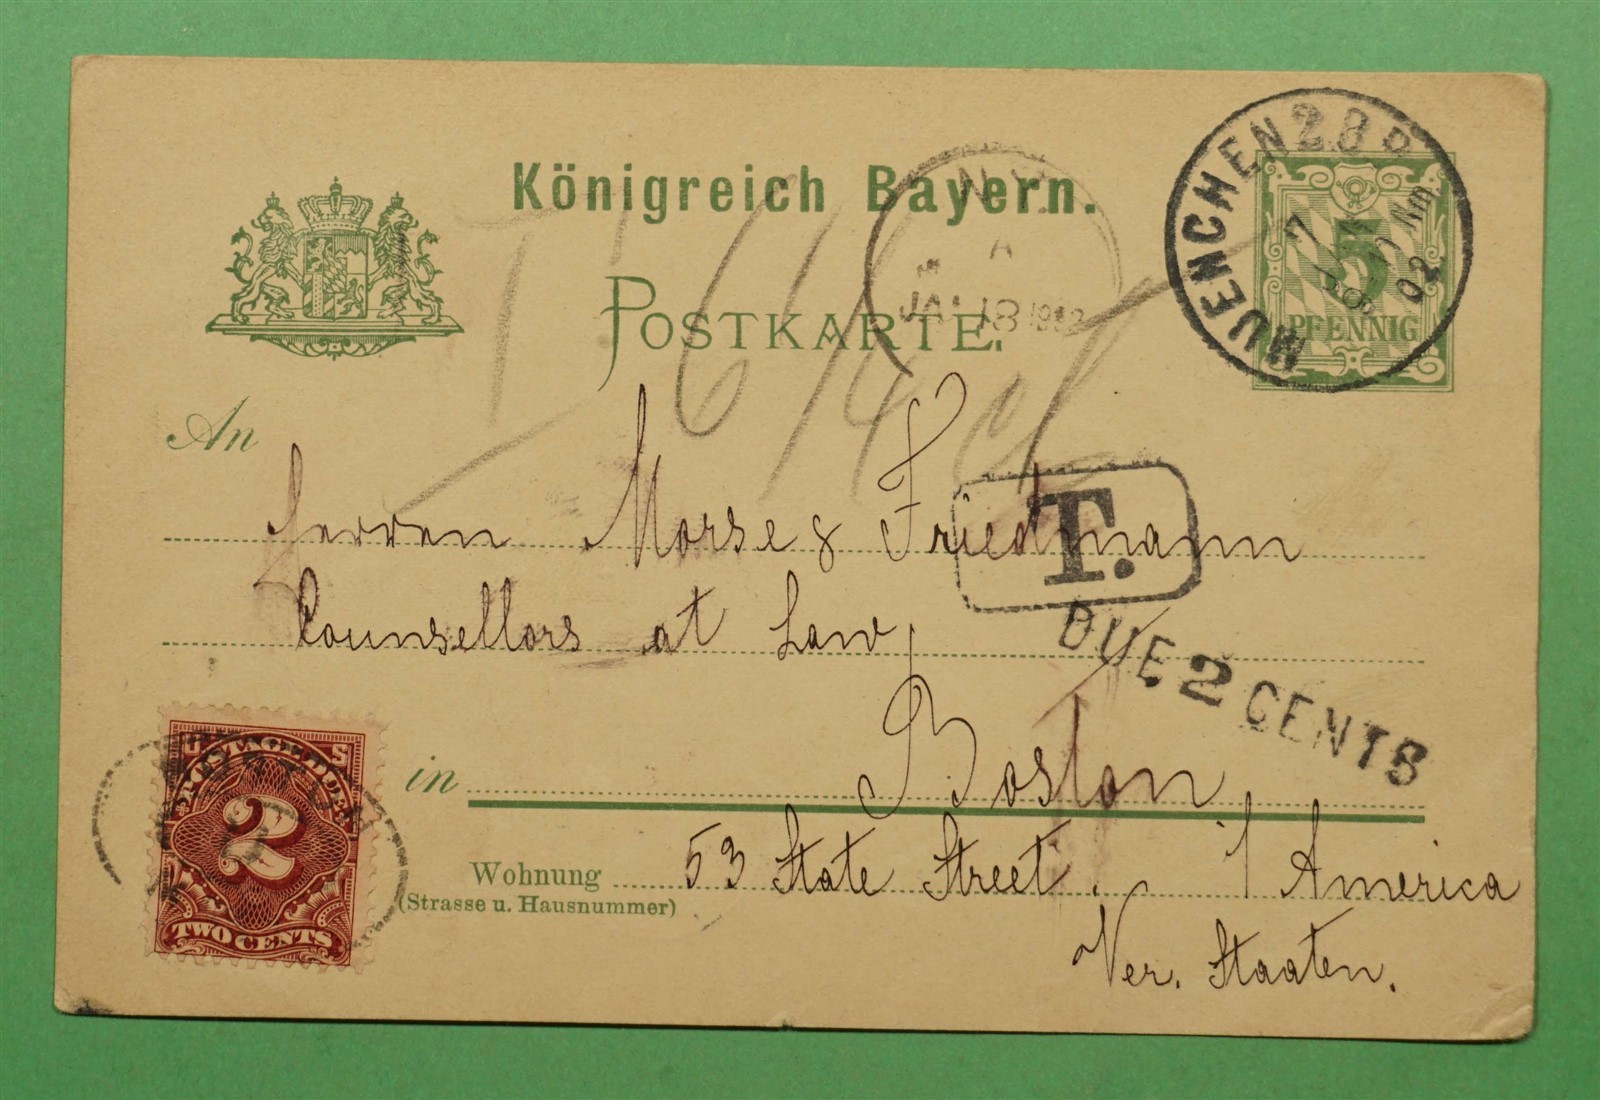 Königreich Bayern.
POSTKARTE.
MUENCHEN 2 B P
7 JAN
02
5
PFENNIG
N.Y.
A
JAN 18 1902
T
An
Herren Morse & Friedmann
T.
Counsellors at Law,
DUE 2 CENTS
in Boston
Wohnung 53 State Street. / America
(Strasse u. Hausnummer)
Ver. Staaten.
U S
POSTAGE DUE
2
TWO CENTS